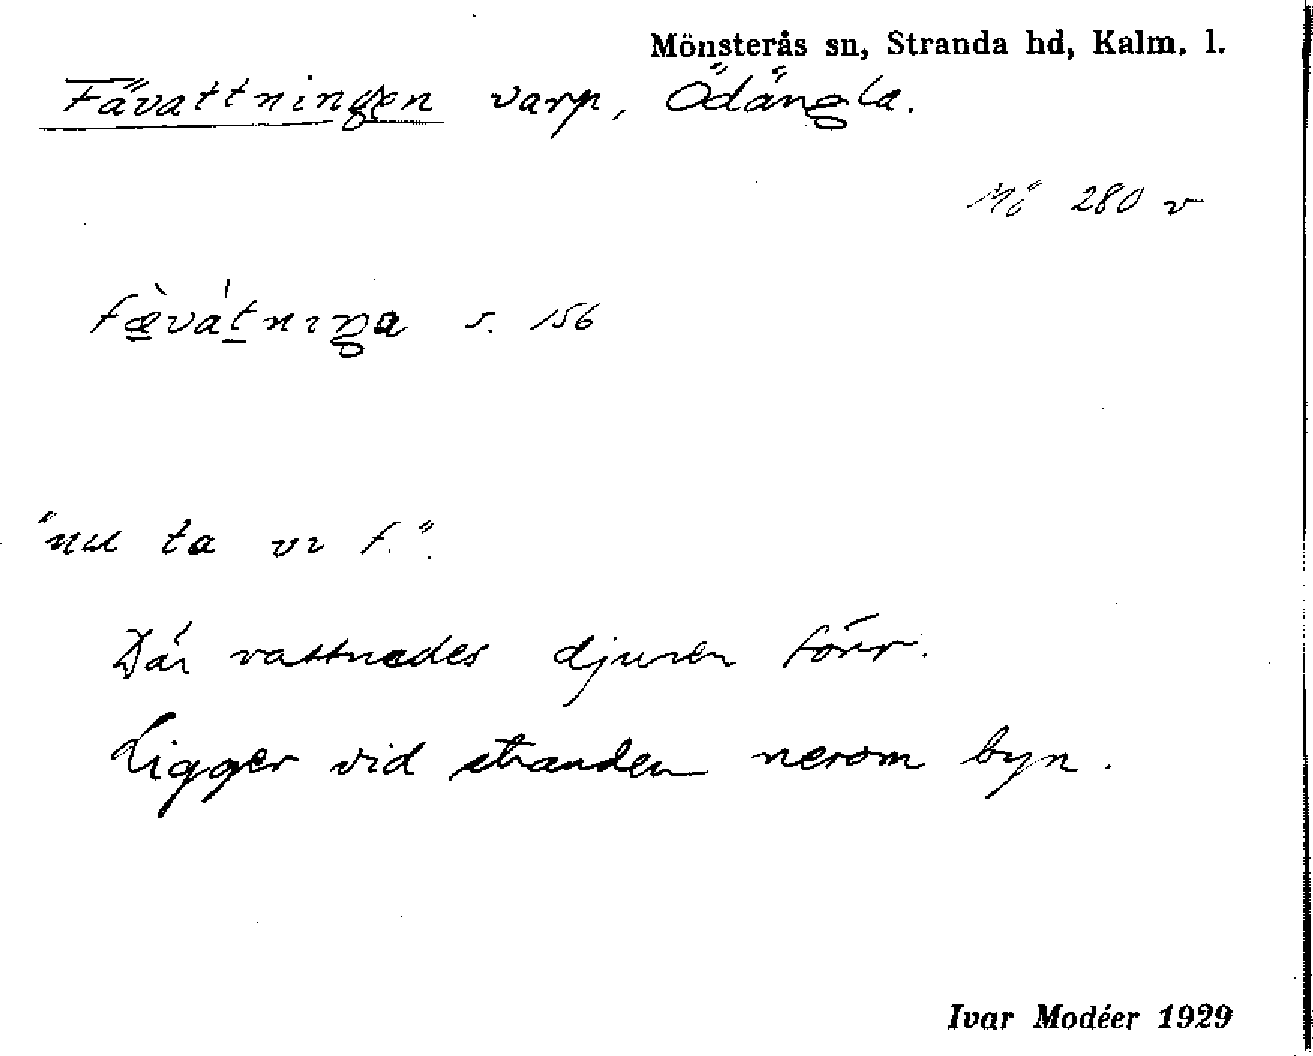 Mönsterås sn, Stranda hd, Kalm. l.
Fävattningen varp, Ödängla.
Mö 280 v
fæ̀vátnıŋa s. 156
"nu ta vı f.".
Där vattnades djuren förr.
Ligger vid stranden nerom byn.
Ivar Modéer 1929